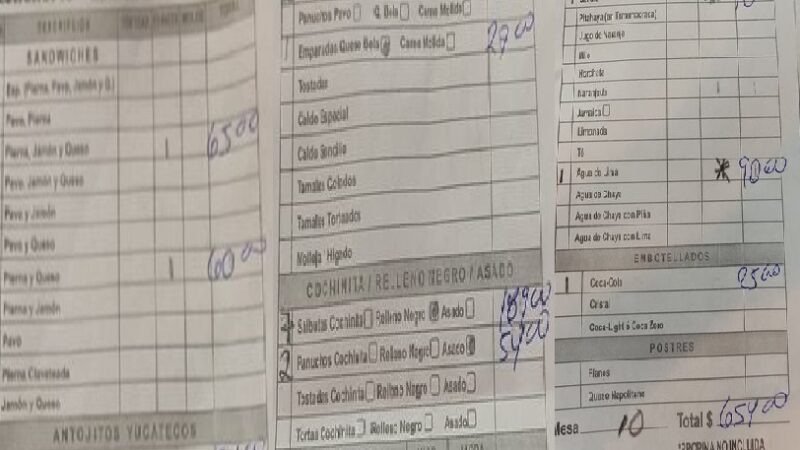 DESCRIPCION TOTAL
SANDWICHES
Esp. (Pierna, Pavo, Jamón y Q.)
Pavo, Pierna
Pierna, Jamón y Queso 1 65 00
Pavo, Jamón y Queso
Pavo y Jamón
Pavo y Queso
Pierna y Queso 1 60 00
Pierna y Jamón
Pavo
Pierna Claveteada
Jamón y Queso
ANTOJITOS YUCATECOS
Panuchos Pavo Q. Bola Carne Molida
1 Empanadas Queso Bola Carne Molida 27 00
Tostadas
Caldo Especial
Caldo Sencillo
Tamales Colados
Tamales Torteados
Molleja Hígado
COCHINITA / RELLENO NEGRO / ASADO
7 Salbutes Cochinita Relleno Negro Asado 189 00
2 Panuchos Cochinita Relleno Negro Asado 54 00
Tostadas Cochinita Relleno Negro Asado
Tortas Cochinita Relleno Negro Asado
Pithaya (por Temporada)
Jugo de Naranja
Horchata
Naranjada
Jamaica
Limonada
Té
1 Agua de Lima * 90 00
Agua de Chaya
Agua de Chaya con Piña
Agua de Chaya con Lima
EMBOTELLADOS
1 Coca-Cola 25 00
Cristal
Coca-Light ó Coca Zero
POSTRES
Flanes
Queso Napolitano
Mesa 10 Total $ 654 00
*PROPINA NO INCLUIDA